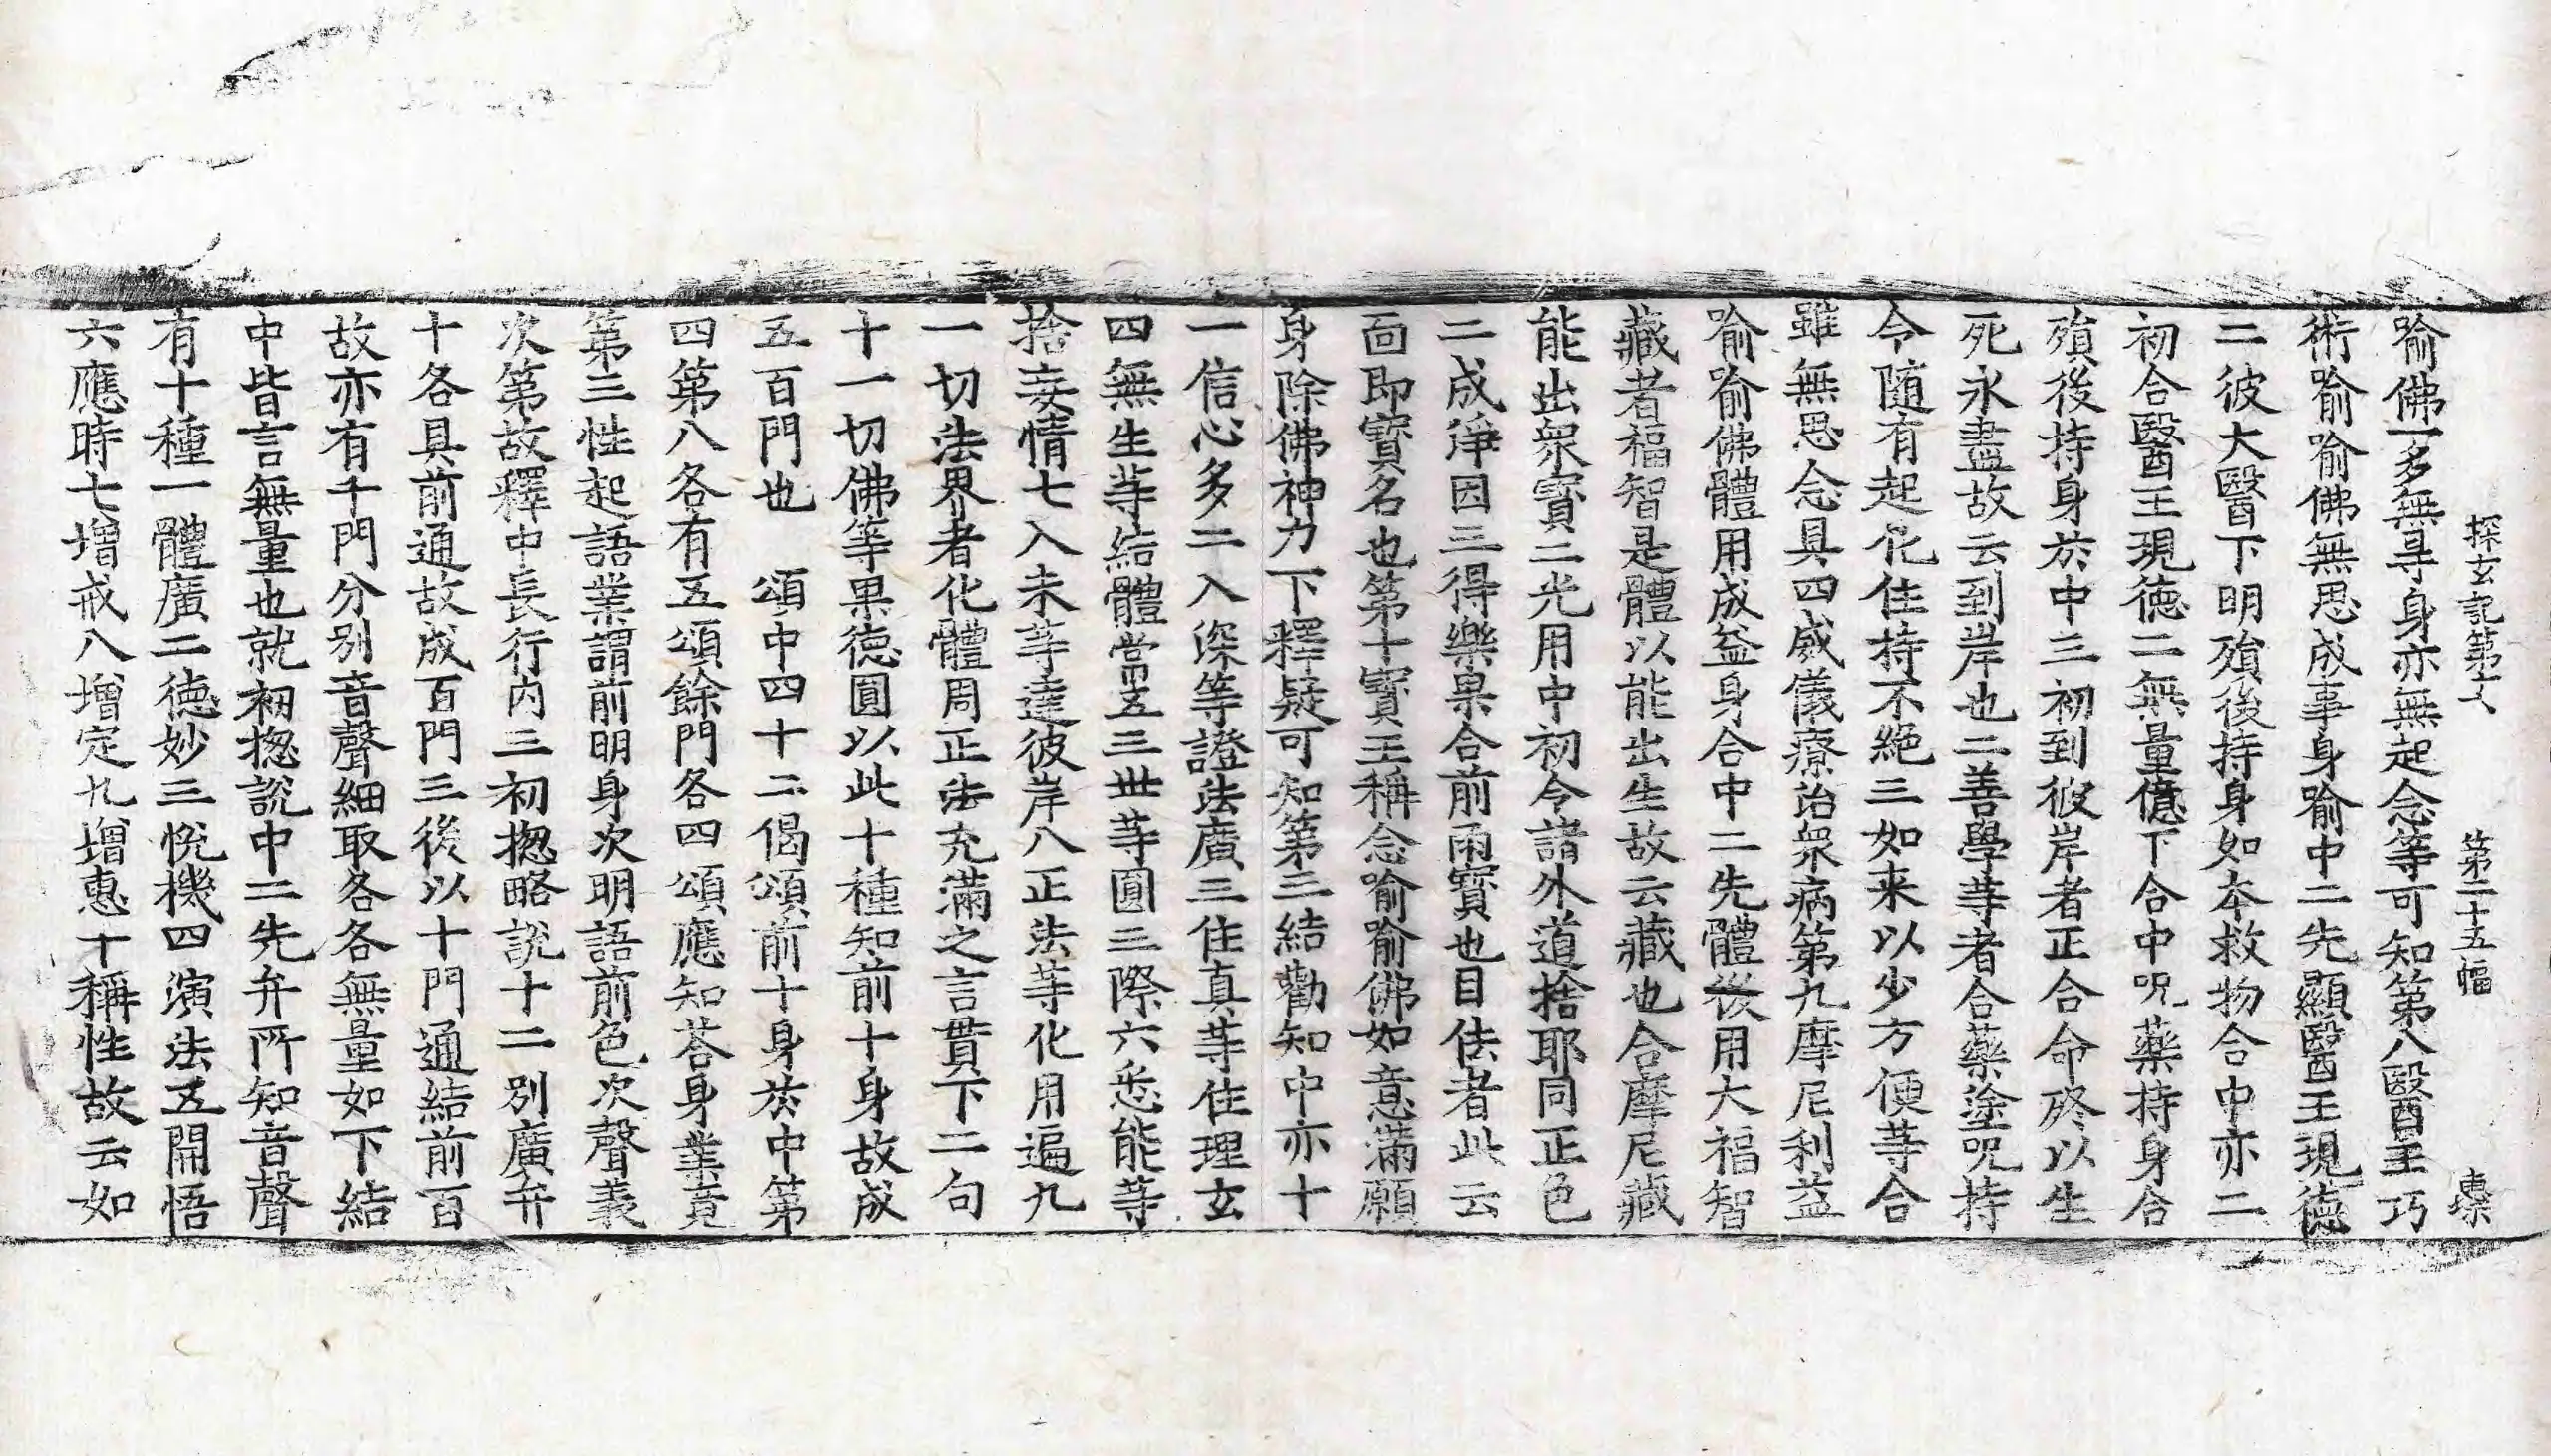 探玄記第十六 第二十五幅
喻佛一多無㝵身亦無起念等可知第八醫王巧
術喻喻佛無思成事身喻中二先顯醫王現徳
二彼大醫下明殞後持身如本救物合中亦二
初合醫王現徳二無量億下合中呪藥持身合
殞後持身於中三初到彼岸者正合命終以生
死永盡故云到岸也二善學等者合藥塗呪持
令随有起化住持不絕三如来以少方便等合
雖無思念具四威儀療治衆病第九摩尼利益
喻喻佛體用成益身合中二先體後用大福智
藏者福智是體以能出生故云藏也合摩尼藏
能出衆寳二光用中初令諸外道捨耶同正色
二成淨因三得樂果合前雨寳也目佉者此云
面即寳名也第十寳王稱念喻喻佛如意滿願
身除佛神力下釋疑可知第三結勸知中亦十
一信心多二入深等證法廣三住真等住理玄
四無生等結體常五三世等圓三際六悉能等
捨妄情七入未等達彼岸八正法等化用遍九
一切法界者化體周正法充滿之言貫下二句
十一切佛等果德圓以此十種知前十身故成
五百門也 頌中四十二偈頌前十身於中第
四第八各有五頌餘門各四頌應知荅身業竟
第三性起語業謂前明身次明語前色次聲義
次第故釋中長行内三初揔略説十二别廣弁
十各具前通故成百門三後以十門通結前百
故亦有千門分别音聲細取各各無量如下結
中皆言無量也就初揔説中二先弁所知音聲
有十種一體廣二德妙三悅機四演法五開悟
六應時七増戒八増定九増惠十稱性故云如